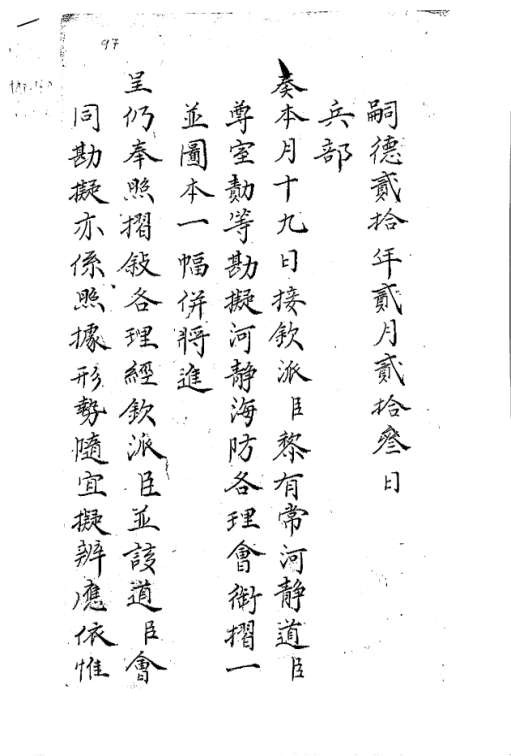 97
嗣德貳拾年貳月貳拾叁日
兵部
奏本月十九日接欽派臣黎有常河靜道臣
尊室勣等勘擬河靜海防各理會銜摺一
並圖本一幅併將進
呈仍奉照摺敍各理經欽派臣並該道臣會
同勘擬亦係照據形勢隨宜擬辨應依惟